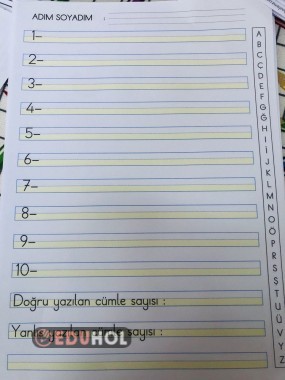 ADIM SOYADIM :
1-
2-
3-
4-
5-
6-
7-
8-
9-
10-
Doğru yazılan cümle sayısı :
Yanlış yazılan cümle sayısı :
EDUHOL
A
B
C
Ç
D
E
F
G
Ğ
H
I
İ
J
K
L
M
N
O
Ö
P
R
S
Ş
T
U
Ü
V
Y
Z